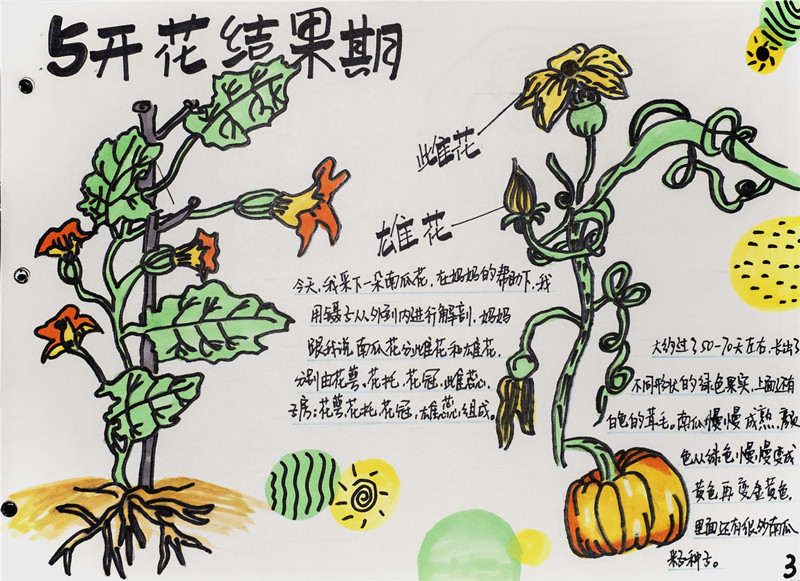 5开花结果期
雌花
雄花
今天,我采下一朵南瓜花,在妈妈的帮助下,我
用镊子从外到内进行解剖,妈妈
跟我说南瓜花分雌花和雄花,
分别由花萼、花托、花冠、雌蕊、
子房;花萼、花托、花冠,雄蕊组成。
大约过了50-70天左右,长出了
不同形状的绿色果实,上面还有
白色的茸毛。南瓜慢慢成熟,颜
色从绿色慢慢变成
黄色再变金黄色,
里面还有很多南瓜
籽种子。
3